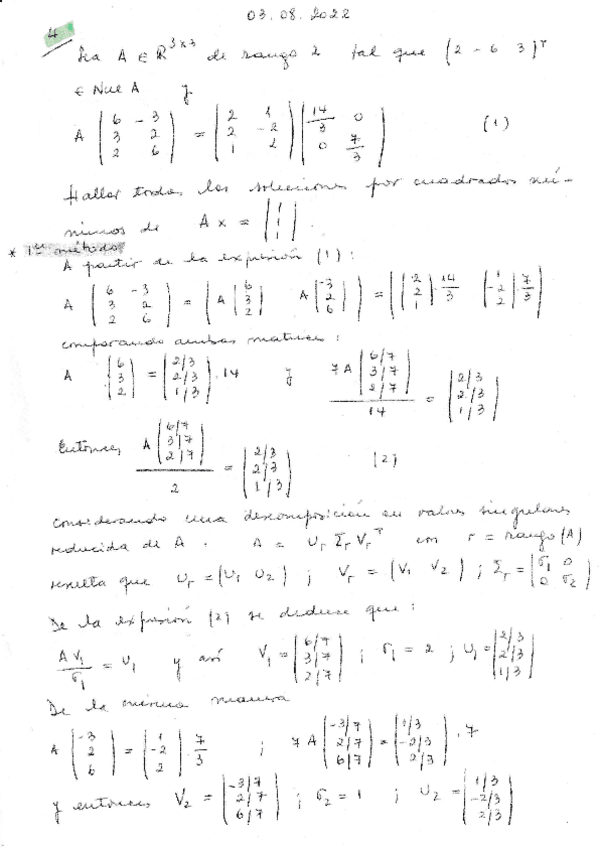 03.08.2022
4
Sea A ∈ R^{3x3} de rango 2 tal que (2 -6 3)^T
∈ Nul A y
A \begin{pmatrix} 6 & -3 \\ 3 & 2 \\ 2 & 6 \end{pmatrix} = \begin{pmatrix} 2 & 1 \\ 2 & -2 \\ 1 & 2 \end{pmatrix} \begin{pmatrix} \frac{14}{3} & 0 \\ 0 & \frac{7}{3} \end{pmatrix} (1)
Hallar todas las soluciones por cuadrados mí-
nimos de A x = \begin{pmatrix} 1 \\ 1 \\ 1 \end{pmatrix}.
* 1er método
A partir de la expresión (1):
A \begin{pmatrix} 6 & -3 \\ 3 & 2 \\ 2 & 6 \end{pmatrix} = \begin{pmatrix} A \begin{pmatrix} 6 \\ 3 \\ 2 \end{pmatrix} & A \begin{pmatrix} -3 \\ 2 \\ 6 \end{pmatrix} \end{pmatrix} = \begin{pmatrix} \begin{pmatrix} 2 \\ 2 \\ 1 \end{pmatrix} . \frac{14}{3} & \begin{pmatrix} 1 \\ -2 \\ 2 \end{pmatrix} . \frac{7}{3} \end{pmatrix}
comparando ambas matrices:
A \begin{pmatrix} 6 \\ 3 \\ 2 \end{pmatrix} = \begin{pmatrix} 2/3 \\ 2/3 \\ 1/3 \end{pmatrix} . 14 y \frac{7 A \begin{pmatrix} 6/7 \\ 3/7 \\ 2/7 \end{pmatrix}}{14} = \begin{pmatrix} 2/3 \\ 2/3 \\ 1/3 \end{pmatrix}
Entonces \frac{A \begin{pmatrix} 6/7 \\ 3/7 \\ 2/7 \end{pmatrix}}{2} = \begin{pmatrix} 2/3 \\ 2/3 \\ 1/3 \end{pmatrix} (2)
considerando una descomposición en valores singulares
reducida de A. A = U_r Σ_r V_r^T con r = rango(A)
resulta que U_r = (U_1 U_2) ; V_r = (V_1 V_2) ; Σ_r = \begin{pmatrix} σ_1 & 0 \\ 0 & σ_2 \end{pmatrix}
De la expresión (2) se deduce que:
\frac{A V_1}{σ_1} = U_1 y así V_1 = \begin{pmatrix} 6/7 \\ 3/7 \\ 2/7 \end{pmatrix} ; σ_1 = 2 ; U_1 = \begin{pmatrix} 2/3 \\ 2/3 \\ 1/3 \end{pmatrix}
De la misma manera
A \begin{pmatrix} -3 \\ 2 \\ 6 \end{pmatrix} = \begin{pmatrix} 1 \\ -2 \\ 2 \end{pmatrix} . \frac{7}{3} ; 7 A \begin{pmatrix} -3/7 \\ 2/7 \\ 6/7 \end{pmatrix} = \begin{pmatrix} 1/3 \\ -2/3 \\ 2/3 \end{pmatrix} . 7
y entonces V_2 = \begin{pmatrix} -3/7 \\ 2/7 \\ 6/7 \end{pmatrix} ; σ_2 = 1 ; U_2 = \begin{pmatrix} 1/3 \\ -2/3 \\ 2/3 \end{pmatrix}